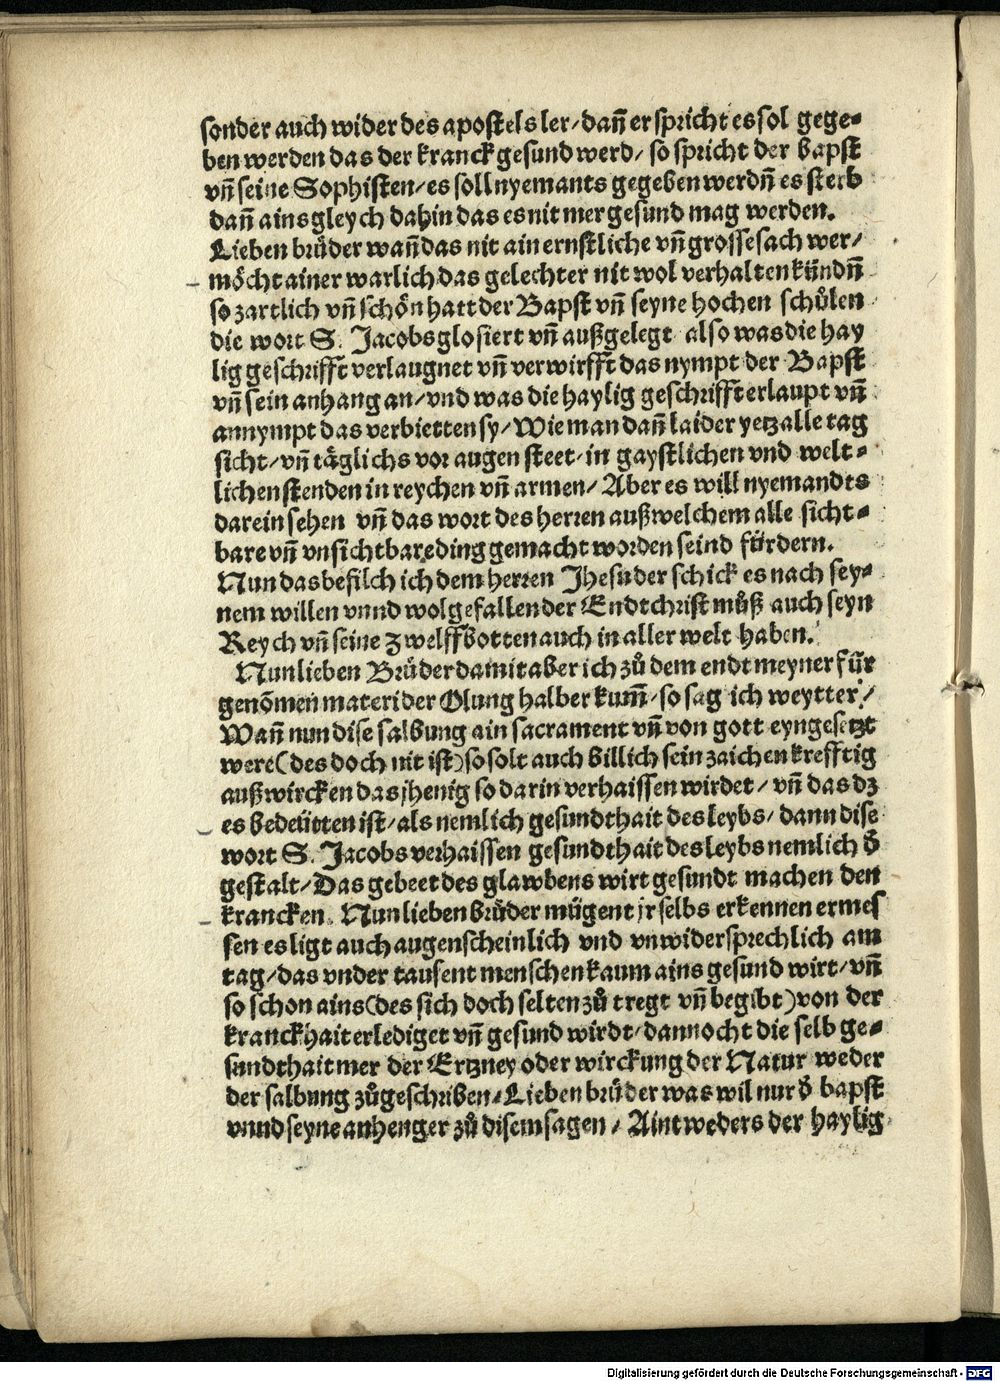 sonder auch wider des apostels ler/ dañ er spricht es sol gege⸗
ben werden das der kranck gesund werd/ so spricht der bapst
vñ seine Sophisten/ es soll nyemants gegeben werdñ es sterb
dañ ains gleych dahin das es nit mer gesund mag werden.
Lieben brüder wañ das nit ain ernstliche vñ grosse sach wer/
möcht ainer warlich das gelechter nit wol verhalten kündñ
so zartlich vñ schön hatt der Bapst vñ seyne hochen schůlen
die wort S. Jacobs glosiert vñ außgelegt also was die hay
lig geschrifft verlaugnet vñ verwirfft das nympt der Bapst
vñ sein anhang an/ vnd was die haylig geschrifft erlaupt vñ
annympt das verbietten sy/ Wie man dañ laider yetz alle tag
sicht/ vñ täglichs vor augen steet/ in gaystlichen vnd welt⸗
lichen stenden in reychen vñ armen/ Aber es will nyemandts
darein sehen vñ das wort des herren auß welchem alle sicht⸗
bare vñ vnsichtbare ding gemacht worden seind fürdern.
Nun das befilch ich dem herren Jhesu der schick es nach sey⸗
nem willen vnnd wolgefallen der Endtchrist můß auch seyn
Reych vñ seine zwelffbotten auch in aller welt haben.
Nun lieben Brüder damit aber ich zů dem endt meyner für
genõmen materi der Olung halber kum̃/ so sag ich weytter/
Wañ nun dise salbung ain sacrament vñ von gott eyngesetzt
were (des doch nit ist) so solt auch billich sein zaichen krefftig
außwircken das jhenig so darin verhaissen wirdet/ vñ das dz
es bedeütten ist/ als nemlich gesundthait des leybs/ dann dise
wort S. Jacobs verhaissen gesundthait des leybs nemlich d̕
gestalt/ Das gebeet des glawbens wirt gesundt machen den
krancken. Nun lieben brüder mügent jr selbs erkennen ermes
sen es ligt auch augenscheinlich vnd vnwidersprechlich am
tag/ das vnder tausent menschen kaum ains gesund wirt/ vñ
so schon ains (des sich doch selten zů tregt vñ begibt) von der
kranckhait erlediget vñ gesund wirdt/ dannocht die selb ge⸗
sundthait mer der Ertzney oder wirckung der Natur weder
der salbung zůgeschriben/ Lieben brüder was wil nur d̕ bapst
vnnd seyne anhenger zů disem sagen/ Aintweders der haylig
Digitalisierung gefördert durch die Deutsche Forschungsgemeinschaft - DFG